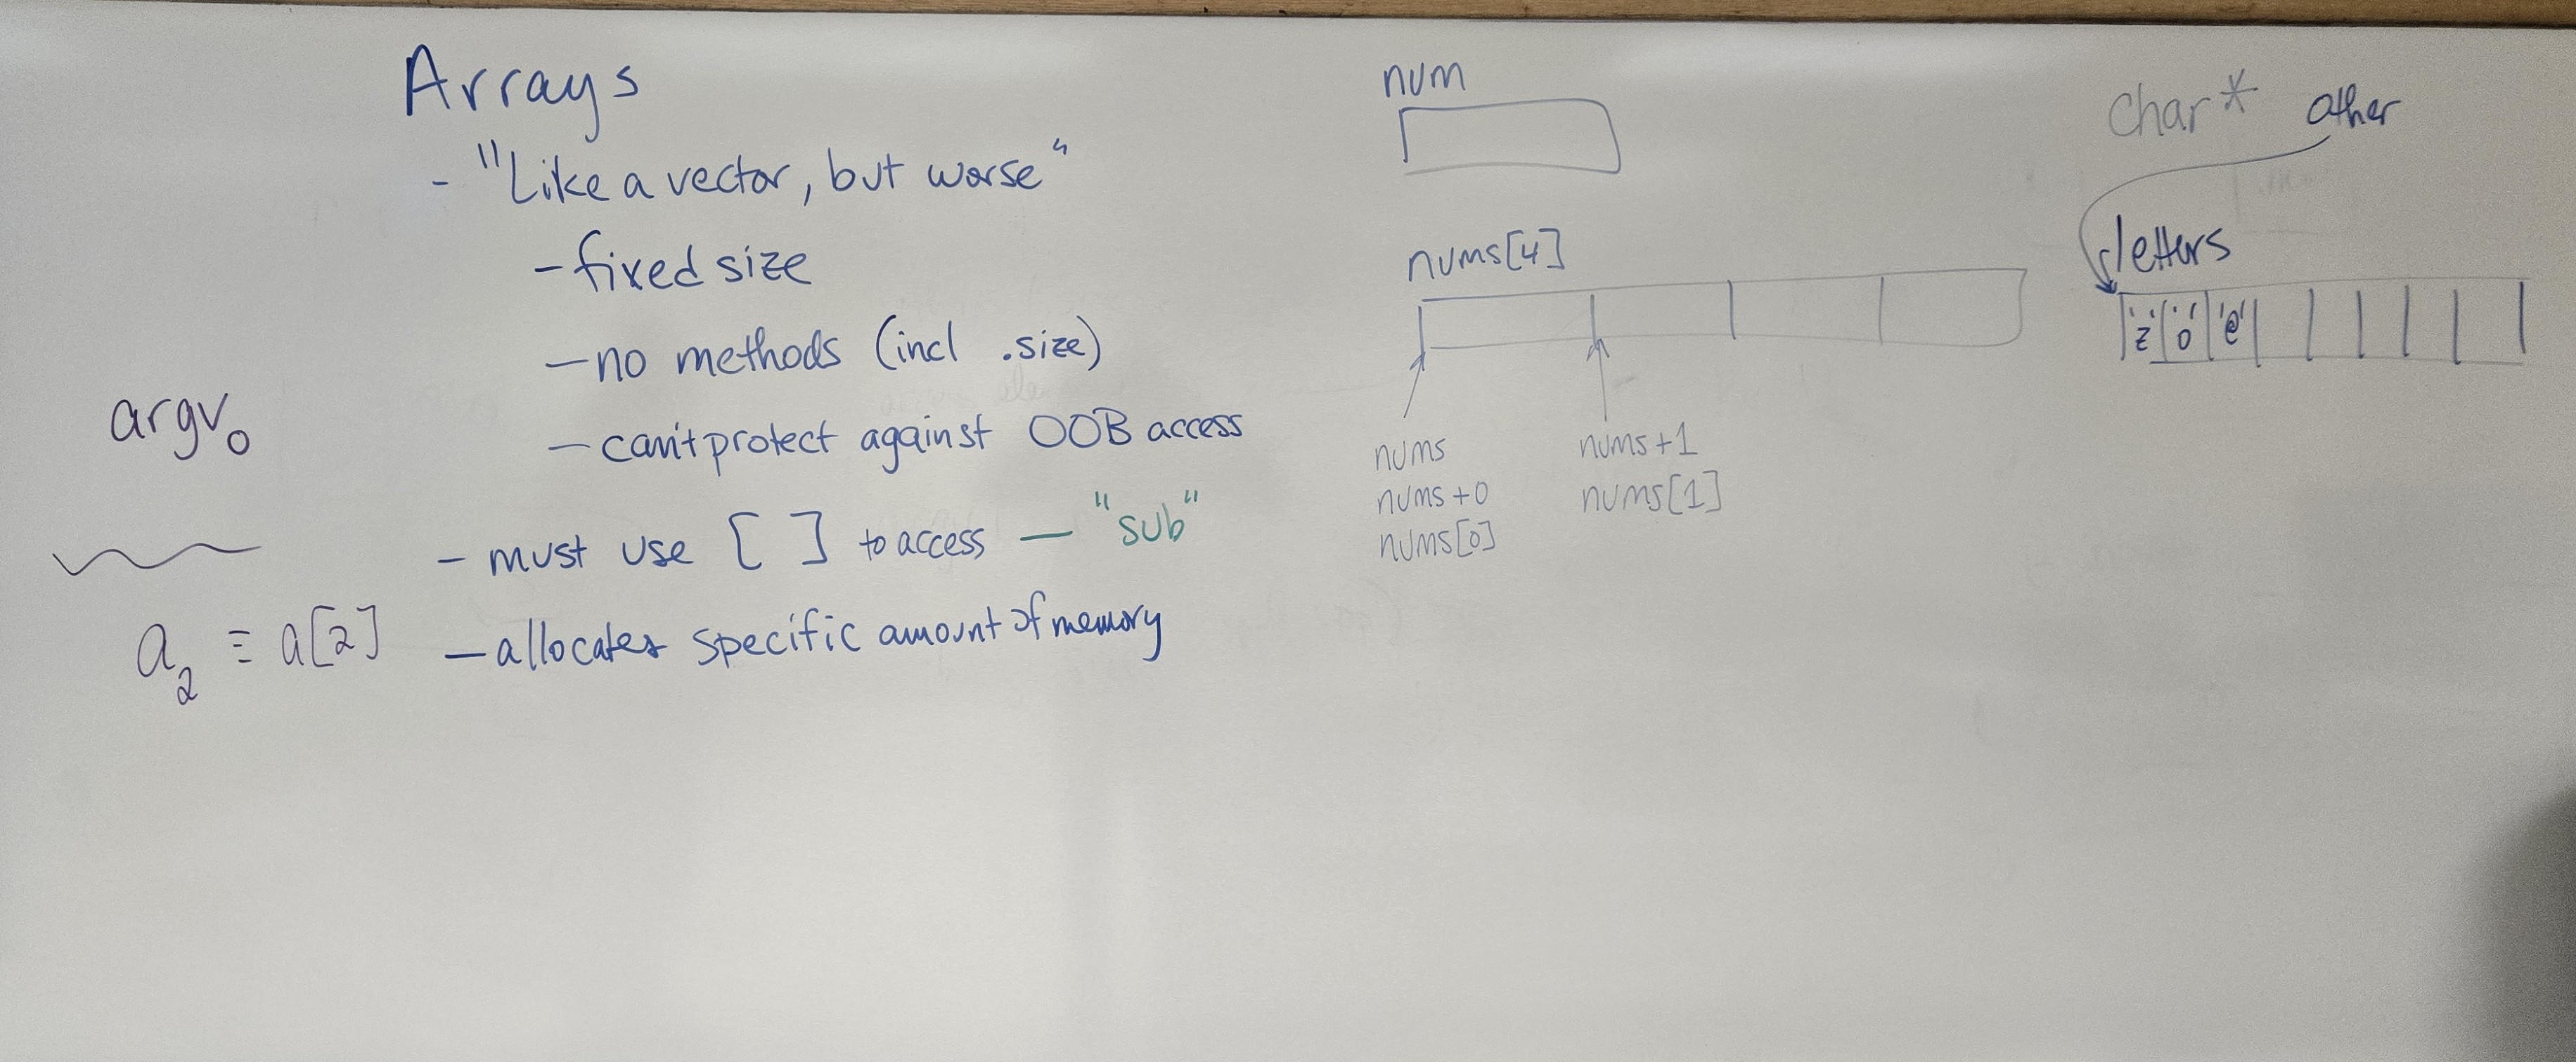 Arrays
- "Like a vector, but worse"
- fixed size
- no methods (incl .size)
- can't protect against OOB access
- must use [ ] to access - "sub"
- allocates specific amount of memory
argv₀
a₂ ≡ a[2]
num
nums[4]
nums
nums+0
nums[0]
nums+1
nums[1]
char* other
letters
'z' 'o' '@'